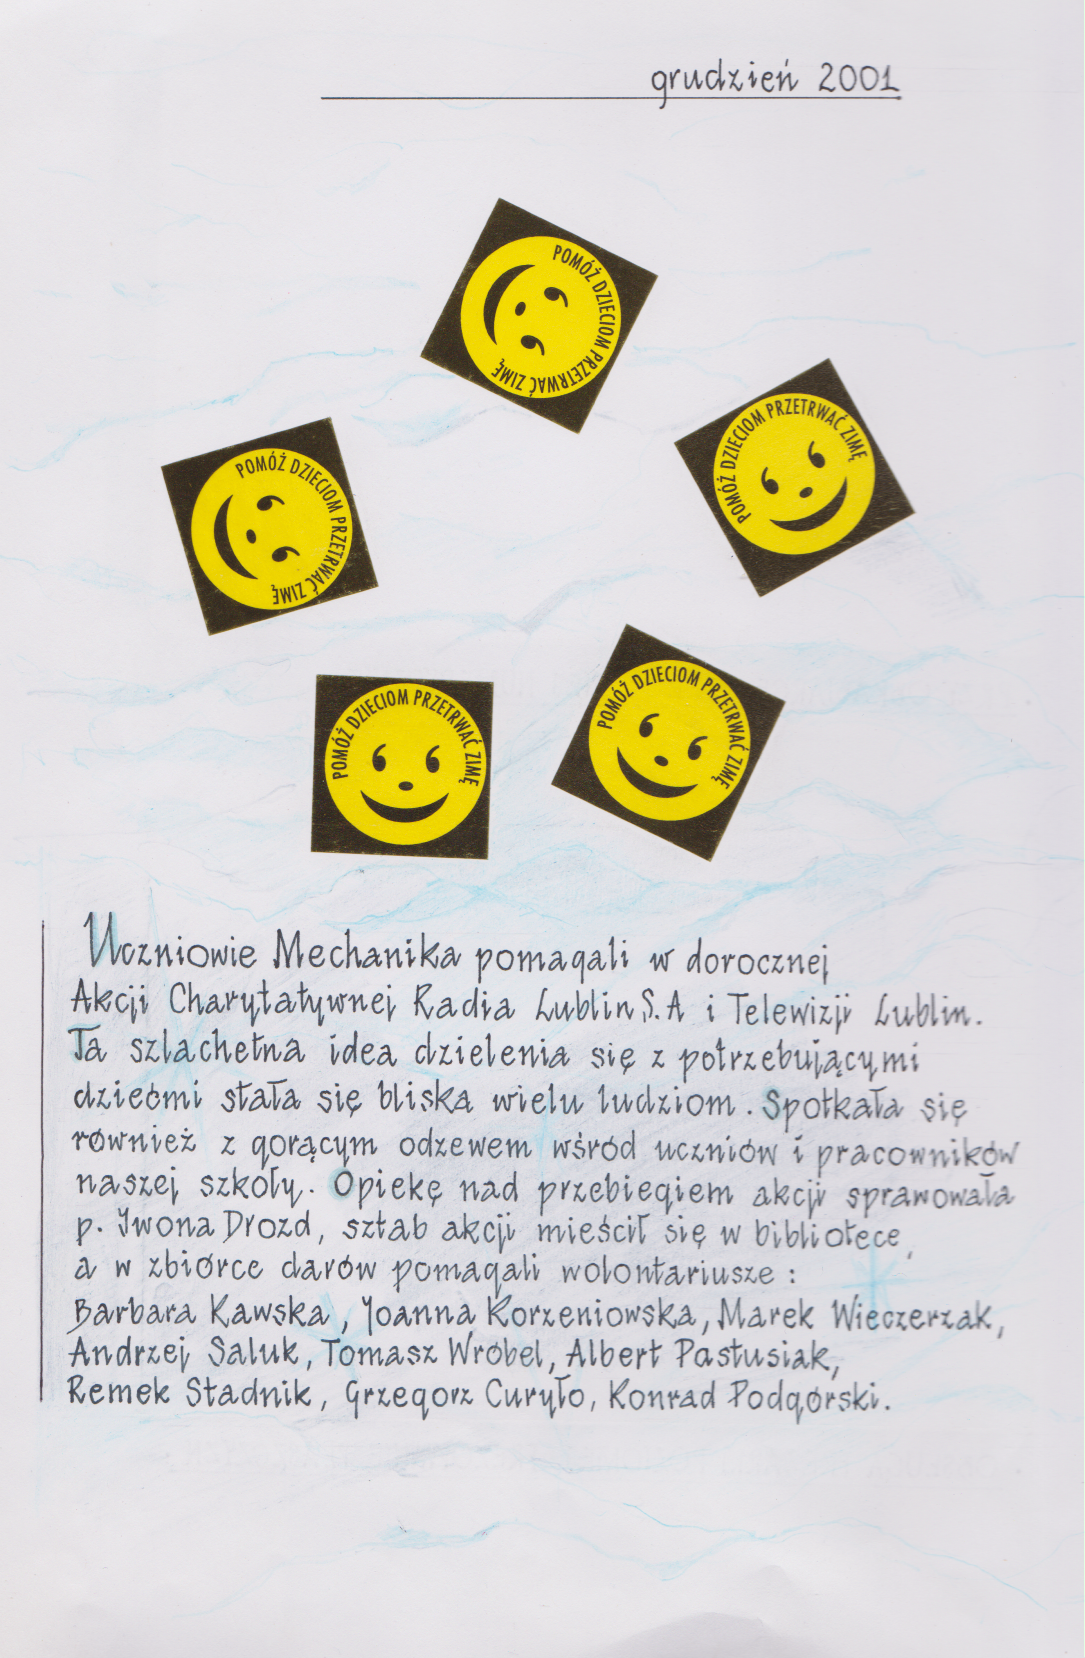 grudzień 2001
POMÓŻ DZIECIOM PRZETRWAĆ ZIMĘ
POMÓŻ DZIECIOM PRZETRWAĆ ZIMĘ
POMÓŻ DZIECIOM PRZETRWAĆ ZIMĘ
POMÓŻ DZIECIOM PRZETRWAĆ ZIMĘ
POMÓŻ DZIECIOM PRZETRWAĆ ZIMĘ
Uczniowie Mechanika pomagali w dorocznej
Akcji Charytatywnej Radia Lublin S.A i Telewizji Lublin.
Ta szlachetna idea dzielenia się z potrzebującymi
dziećmi stała się bliska wielu ludziom. Spotkała się
również z gorącym odzewem wśród uczniów i pracowników
naszej szkoły. Opiekę nad przebiegiem akcji sprawowała
p. Iwona Drozd, sztab akcji mieścił się w bibliotece,
a w zbiórce darów pomagali wolontariusze:
Barbara Kawska, Joanna Korzeniowska, Marek Wieczerzak,
Andrzej Saluk, Tomasz Wróbel, Albert Pastusiak,
Remek Stadnik, Grzegorz Curyło, Konrad Podgórski.